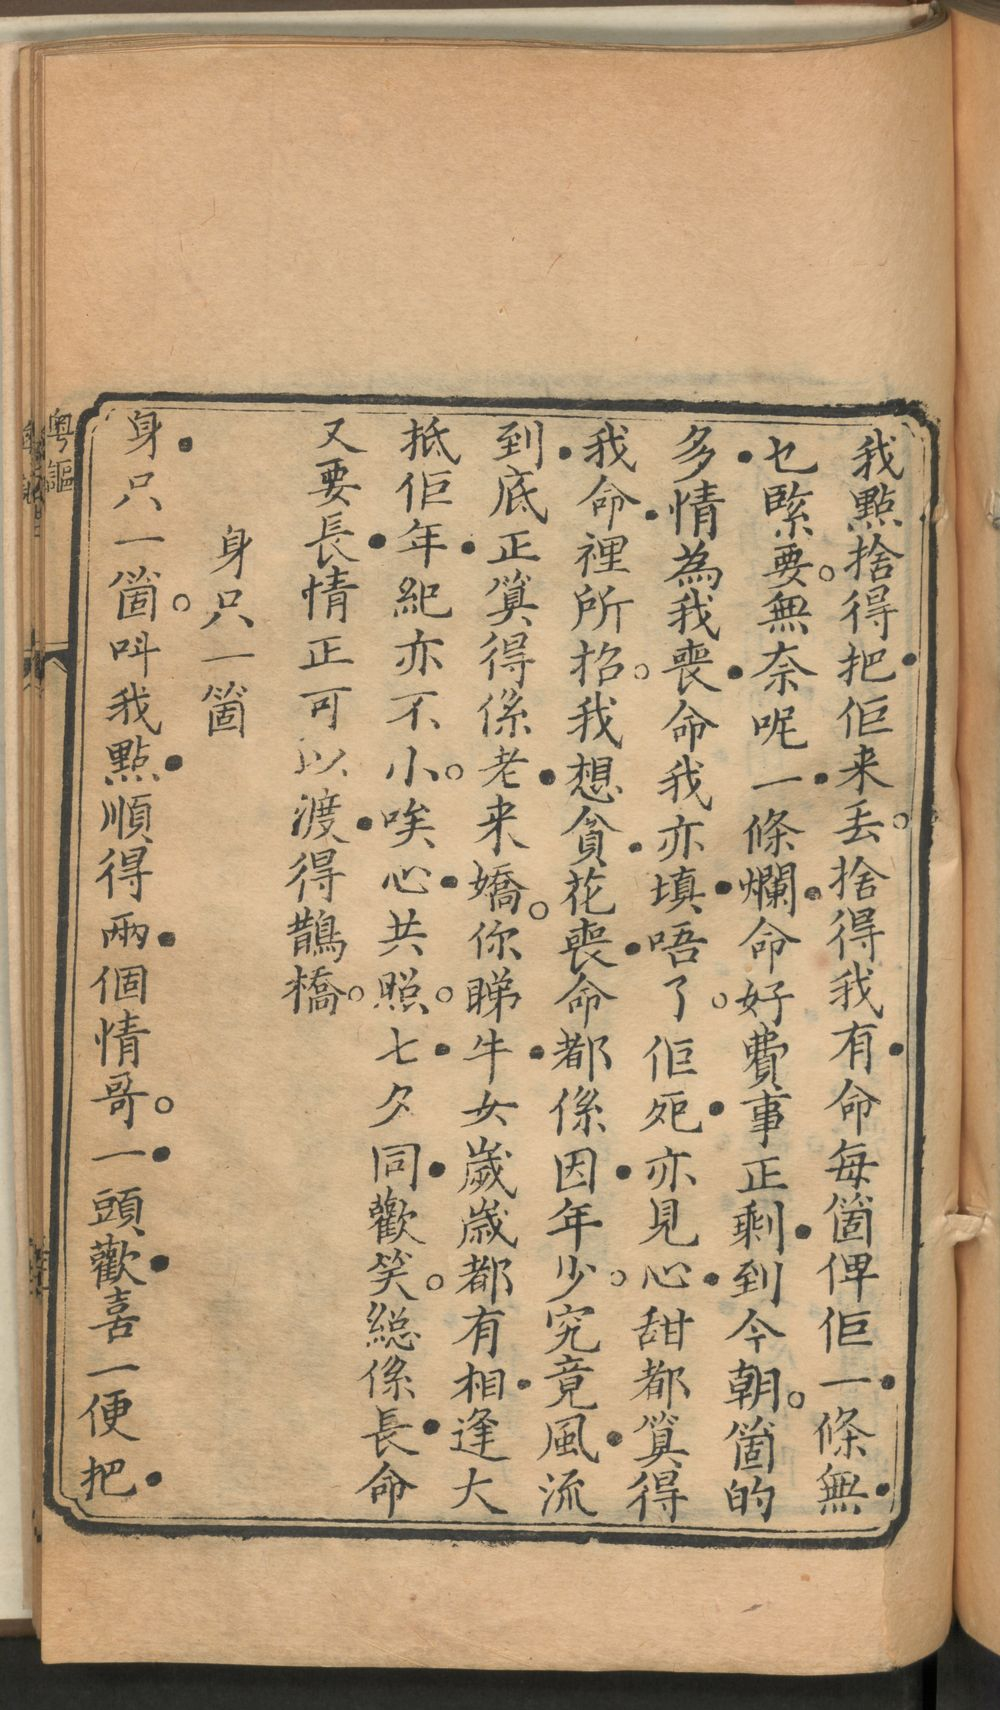 我點捨得把佢来丢○捨得我有命每箇俾佢一條無
乜緊要○無奈呢一條爛命好費事正剩到今朝○箇的
多情為我喪命我亦填唔了○佢死亦見心甜都算得
我命裡所招○我想貪花喪命都係因年少○究竟風流
到底正算得係老来嬌○你睇牛女歲歲都有相逢大
抵佢年紀亦不小○唉心共照○七夕同歡笑○総係長命
又要長情正可以渡得鵲橋○
身只一箇
身只一箇○呌我點順得兩個情哥○一頭歡喜一便把
粤謳